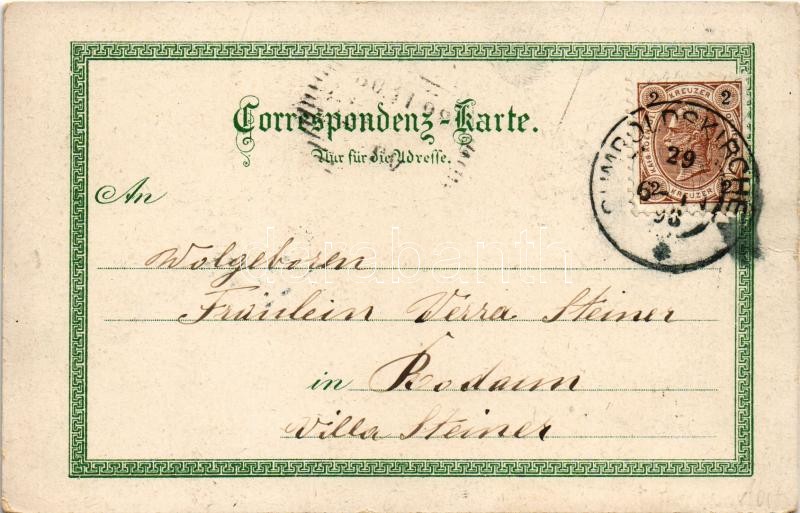 Correspondenz-Karte.
Nur für die Adresse.
2 KREUZER 2
2 KREUZER 2
GUMPOLDSKIRCHEN
29
6 98
An
Wolgeboren
Fräulein Verra Steiner
in Rodaun
Villa Steiner
darabanth